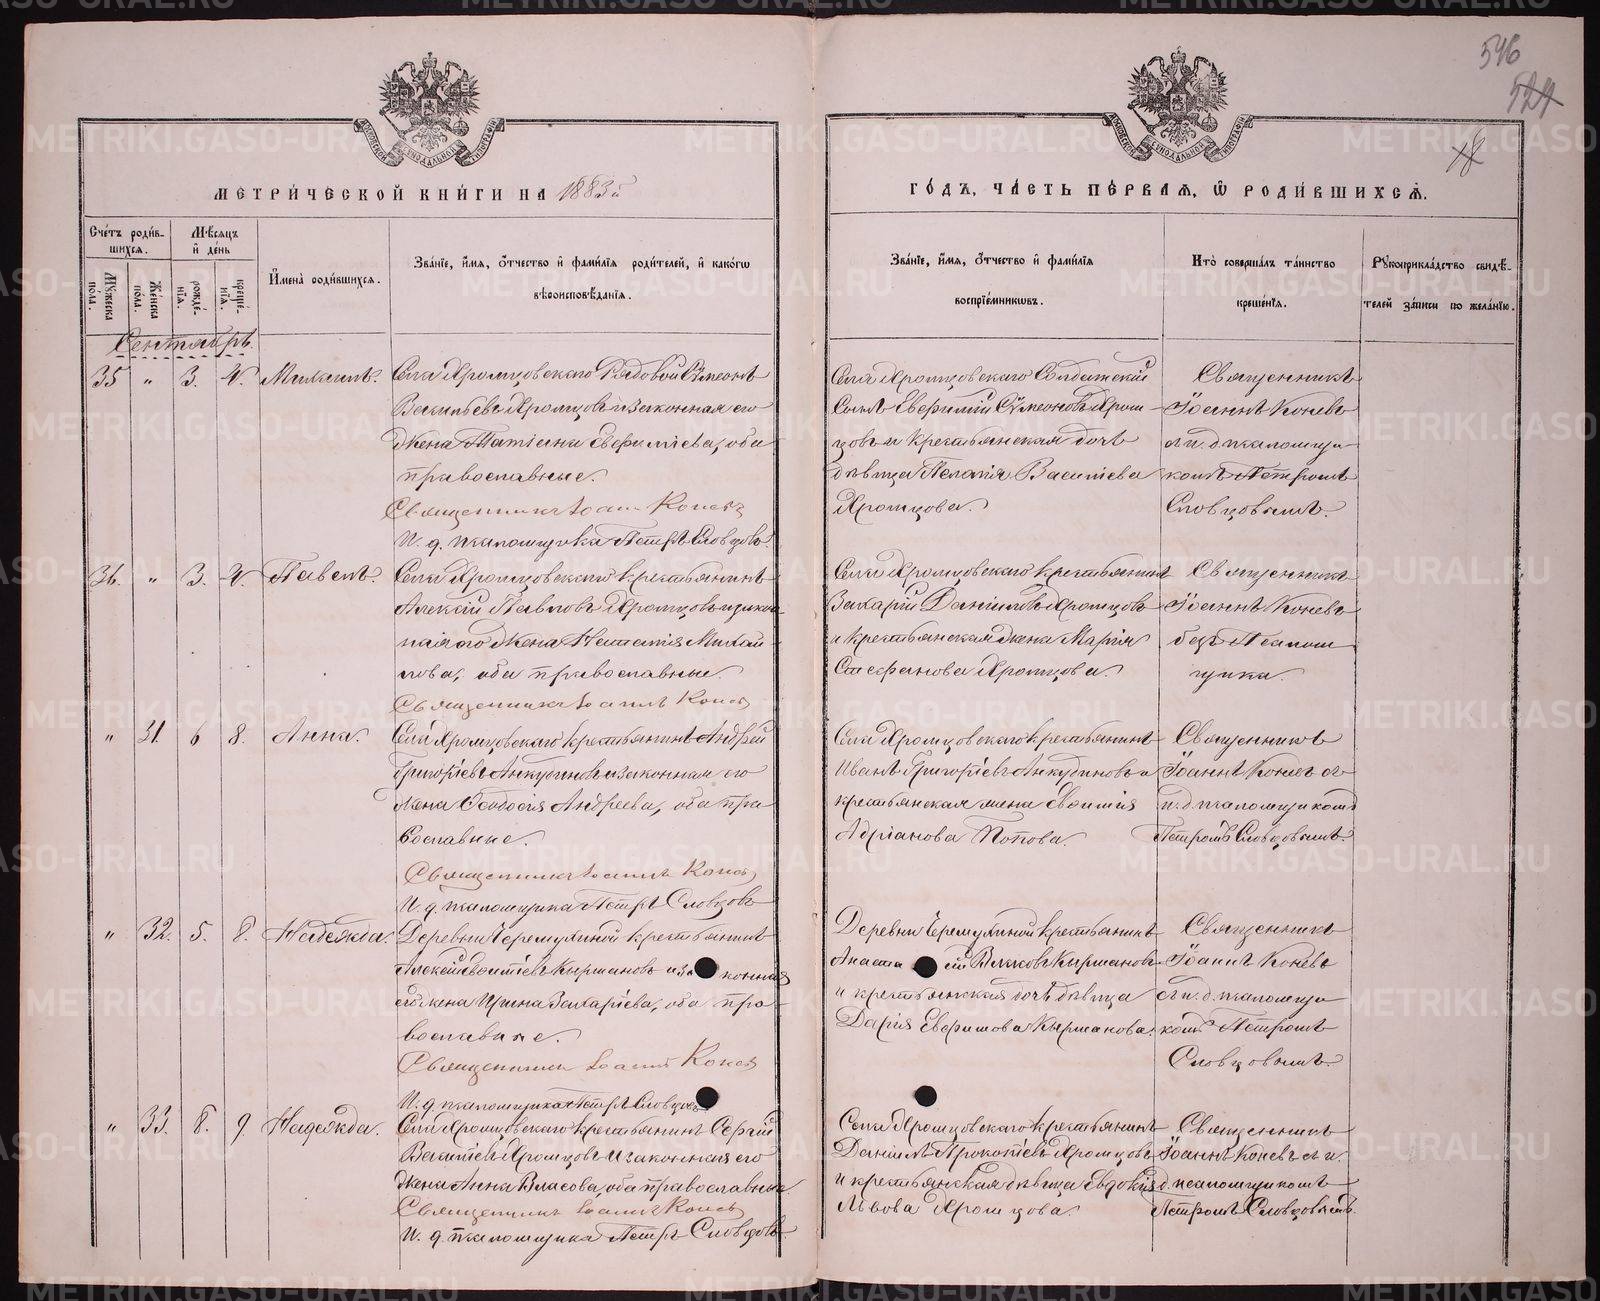 546
524
18
МЕТРИ́ЧЕСКОЙ КНИ́ГИ НА 1883й
ГО́ДЪ, ЧА́СТЬ ПЕ́РВАЯ, Ѡ РОДИ́ВШИХСЯ.
Сче́тъ роди́вшихся.
Мѣ́сяцъ и҆ де́нь
И҆мена̀ роди́вшихся.
Зва́нїе, и҆́мя, ѻ҆́тчество и҆ фами́лїя роди́телей, и҆ како́гѡ
вѣроисповѣ́данїя.
Мꙋ́жеска по́ла.
Же́нска по́ла.
рожде́нїя.
креще́нїя.
Зва́нїе, и҆́мя, ѻ҆́тчество и҆ фами́лїя
воспрїе́мникѡвъ.
Кто̀ соверша́лъ та́инство
креще́нїя.
Рꙋкоприкла́дство свидѣ́-
телей за́писи по жела́нїю.
Сентябрь.
35 " 3. 4. Михаилъ.
Села Хромцовскаго Рядовой Сѵмеонъ
Васильевъ Хромцовъ и законная его
жена Татіана Евфиміева, оба
православные.
Священникъ Іоаннъ Коневъ
И. д. псаломщика Петръ Словцовъ.
Села Хромцовскаго Солдатскій
Сынъ Евфимій Сѵмеоновъ Хром-
цовъ и крестьянская дочь
дѣвица Пелагія Васильева
Хромцова.
Священникъ
Іоаннъ Коневъ
съ и. д. псаломщи-
комъ Петромъ
Словцовымъ.
36. " 3. 4. Павелъ.
Села Хромцовскаго крестьянинъ
Алексій Павловъ Хромцовъ и закон-
ная его жена Наталія Михай-
лова, оба православные.
Священникъ Іоаннъ Коневъ
Села Хромцовскаго крестьянинъ
Захарій Даніиловъ Хромцовъ
и крестьянская жена Марія
Стефанова Хромцова.
Священникъ
Іоаннъ Коневъ
безъ Псалом-
щика.
" 31. 6 8. Анна.
Села Хромцовскаго крестьянинъ Андрей
Григорьевъ Анкудиновъ и законная его
жена Ѳеодосія Андреева, оба пра-
вославные.
Священникъ Іоаннъ Коневъ
И. д. псаломщика Петръ Словцовъ
Села Хромцовскаго крестьянинъ
Иванъ Григорьевъ Анкудиновъ и
крестьянская жена
Адріанова Попова.
Священникъ
Іоаннъ Коневъ съ
и. д. псаломщикомъ
Петромъ Словцовымъ.
" 32. 5. 8. Надежда.
Деревни Черемухиной крестьянинъ
Алексій Кырчановъ и законная
его жена Ирина Захаріева, оба пра-
вославные.
Священникъ Іоаннъ Коневъ
И. д. псаломщика Петръ Словцовъ
Деревни Черемухиной крестьянинъ
Кырчановъ
и крестьянская дочь дѣвица
Дарія Евфимова Кырчанова.
Священникъ
Іоаннъ Коневъ
съ и. д. псаломщи-
комъ Петромъ
Словцовымъ.
" 33. 8. 9. Надежда.
Села Хромцовскаго крестьянинъ Сергій
Васильевъ Хромцовъ и законная его
жена Анна Власова, оба православные.
Священникъ Іоаннъ Коневъ
И. д. псаломщика Петръ Словцовъ
Села Хромцовскаго крестьянинъ
Даніилъ Прокопьевъ Хромцовъ
и крестьянская дѣвица Евдокія
Львова Хромцова.
Священникъ
Іоаннъ Коневъ съ и.
д. псаломщикомъ
Петромъ Словцовымъ.